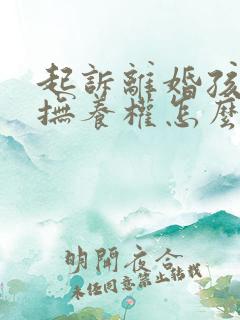 起訴離婚孩
撫養權怎麼
明開夜合
未經同意禁止轉載